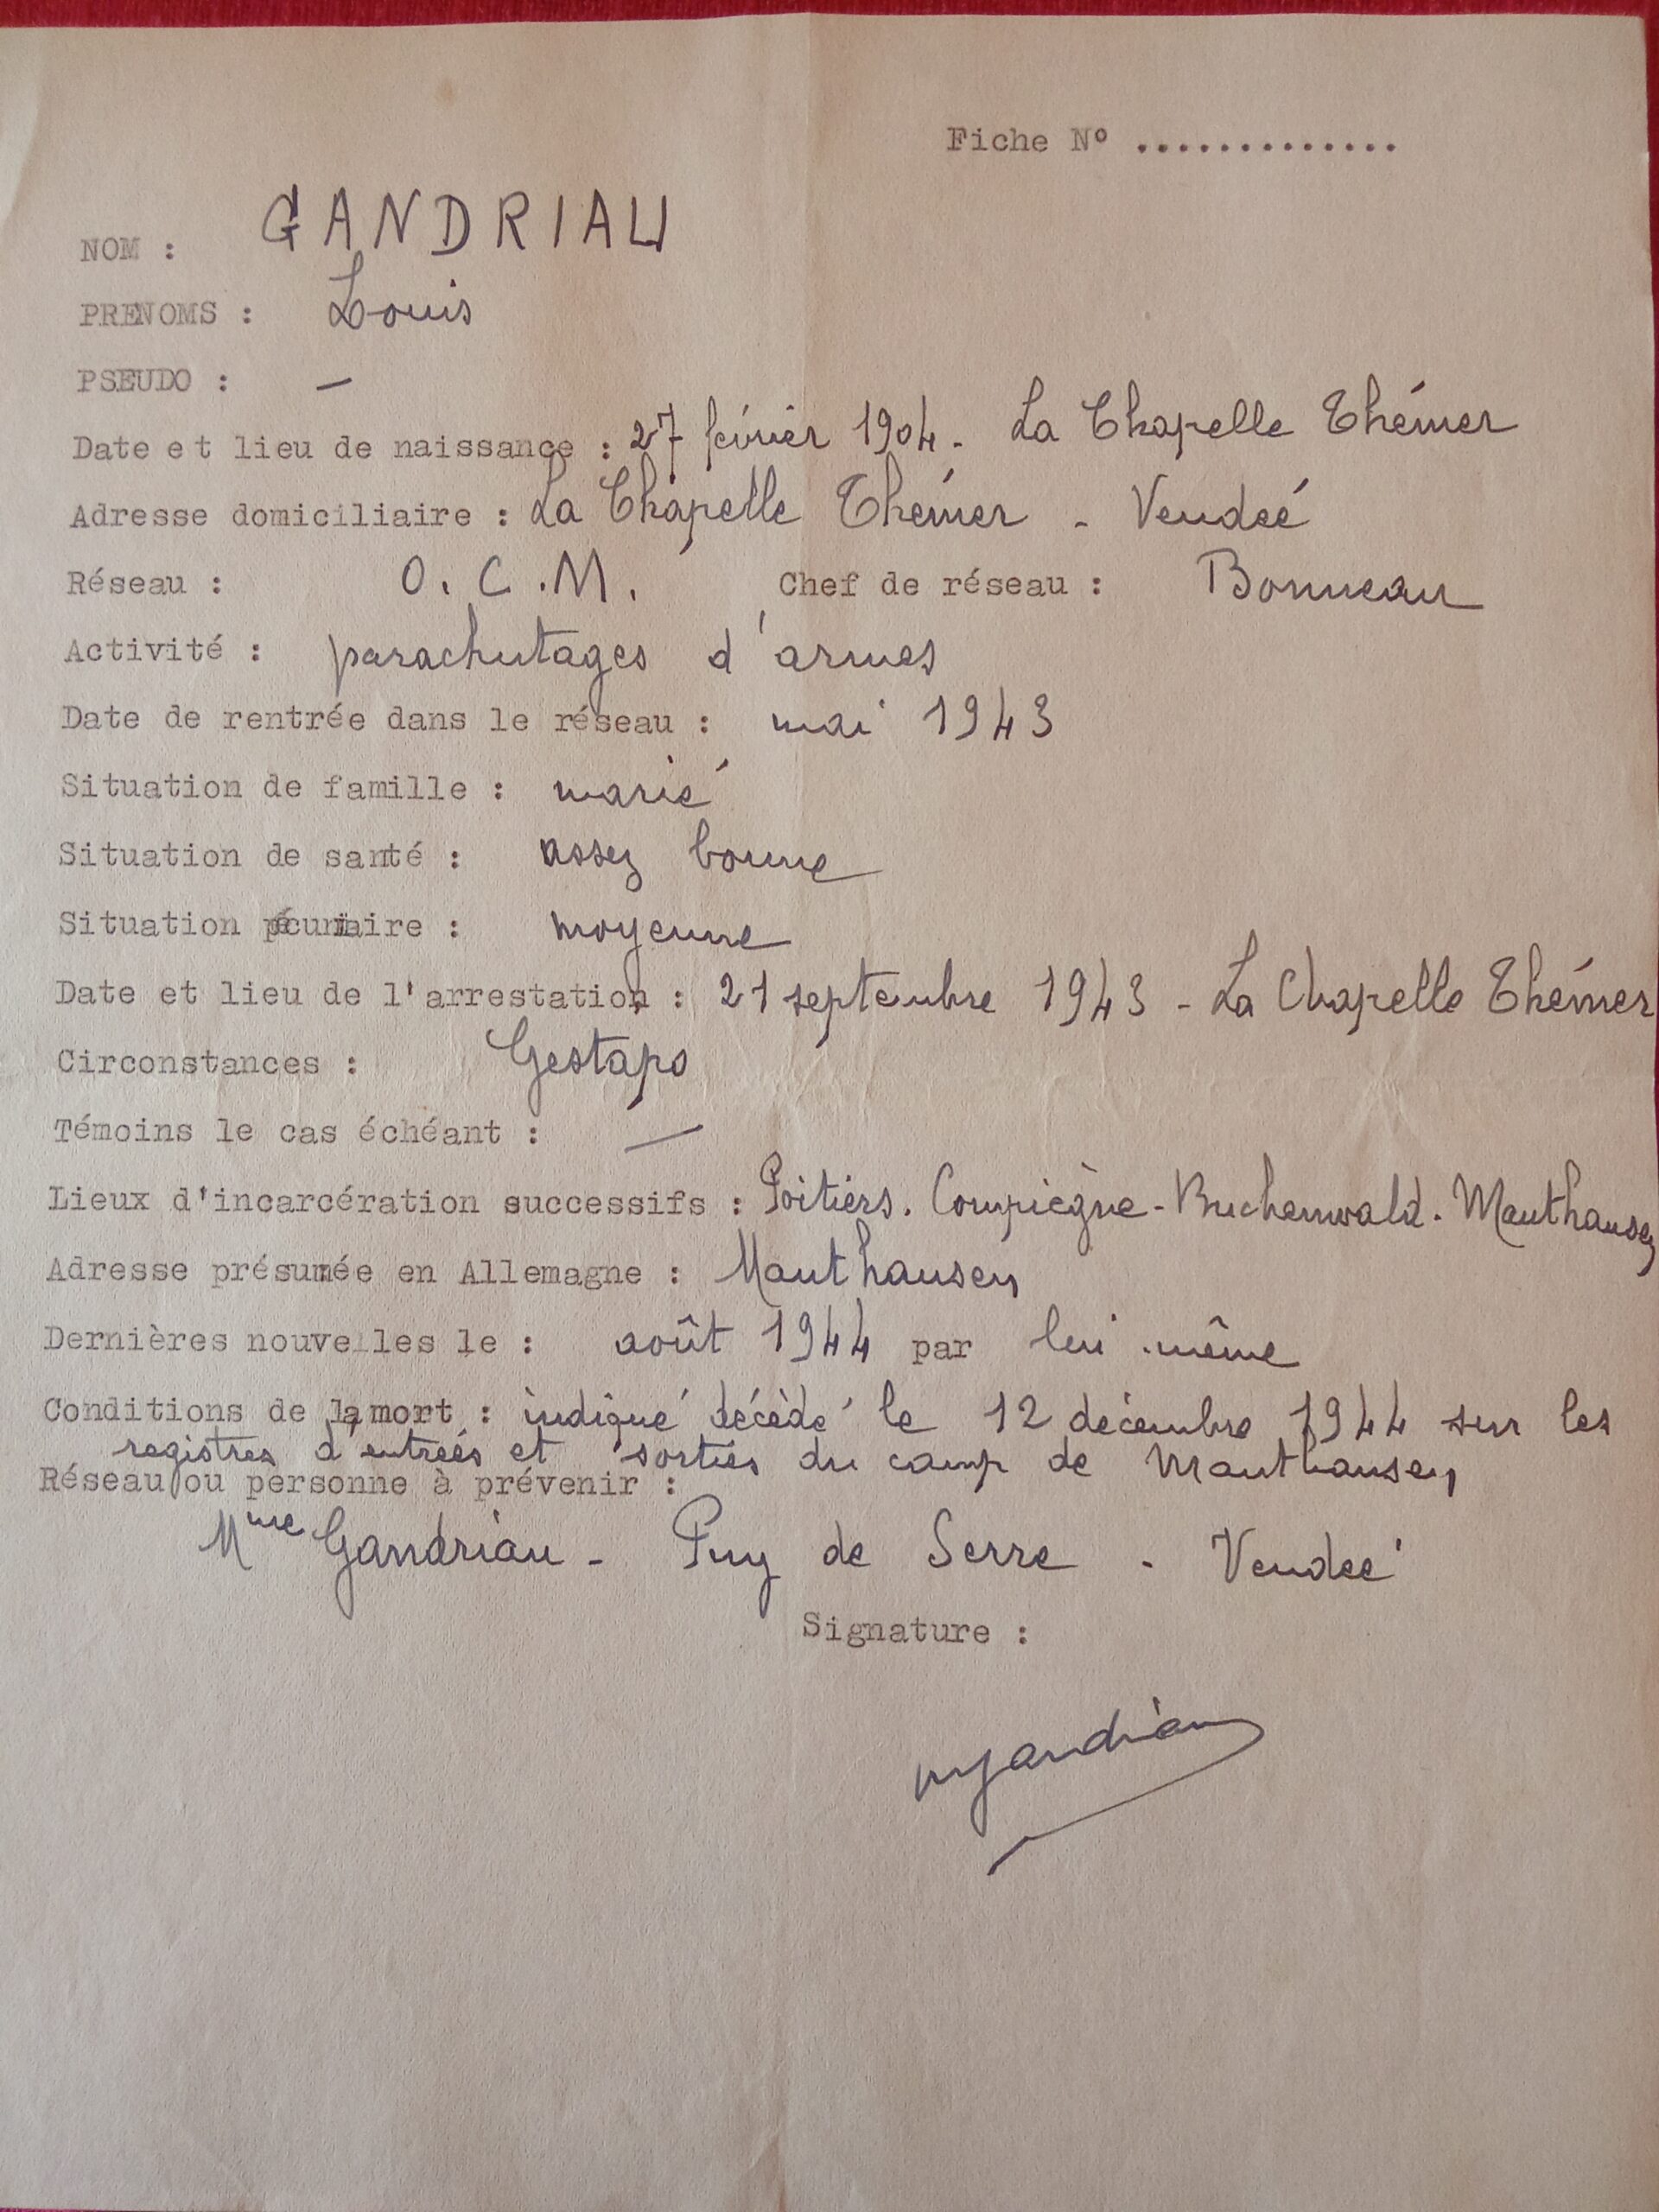 Fiche N° .............
NOM : GANDRIAU
PRENOMS : Louis
PSEUDO : —
Date et lieu de naissance : 27 février 1904 - La Chapelle Thémer
Adresse domiciliaire : La Chapelle Thémer - Vendée
Réseau : O.C.M. Chef de réseau : Bonneau
Activité : parachutages d'armes
Date de rentrée dans le réseau : mai 1943
Situation de famille : marié
Situation de santé : assez bonne
Situation pécuniaire : moyenne
Date et lieu de l'arrestation : 21 septembre 1943 - La Chapelle Thémer
Circonstances : Gestapo
Témoins le cas échéant : —
Lieux d'incarcération successifs : Poitiers. Compiègne - Buchenwald. Mauthausen
Adresse présumée en Allemagne : Mauthausen
Dernières nouvelles le : août 1944 par lui-même
Conditions de la mort : indiqué décédé le 12 décembre 1944 sur les
registres d'entrées et sorties du camp de Mauthausen
Réseau ou personne à prévenir :
Mme Gandriau - Puy de Serre - Vendée
Signature :
Gandriau